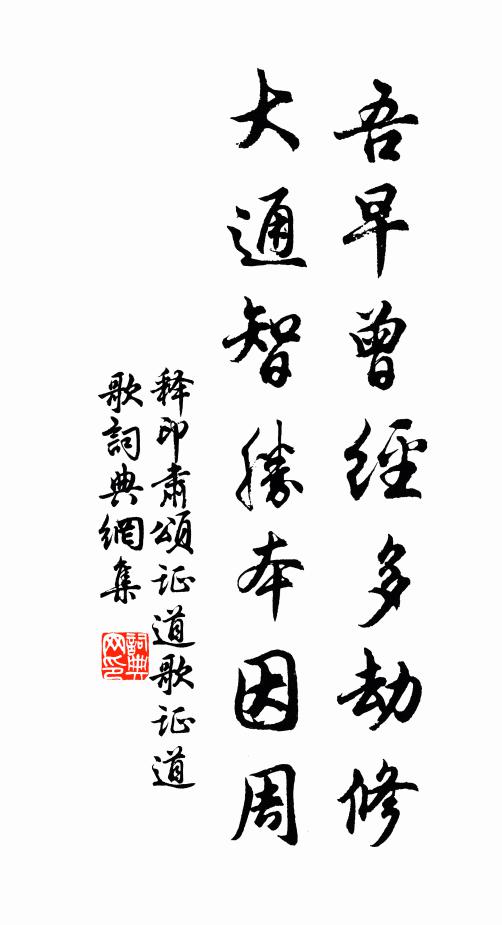 吾早曾經多劫修
大通智勝本因周
释印肅頌证道歌证道
歌詞典網集
詞典网印